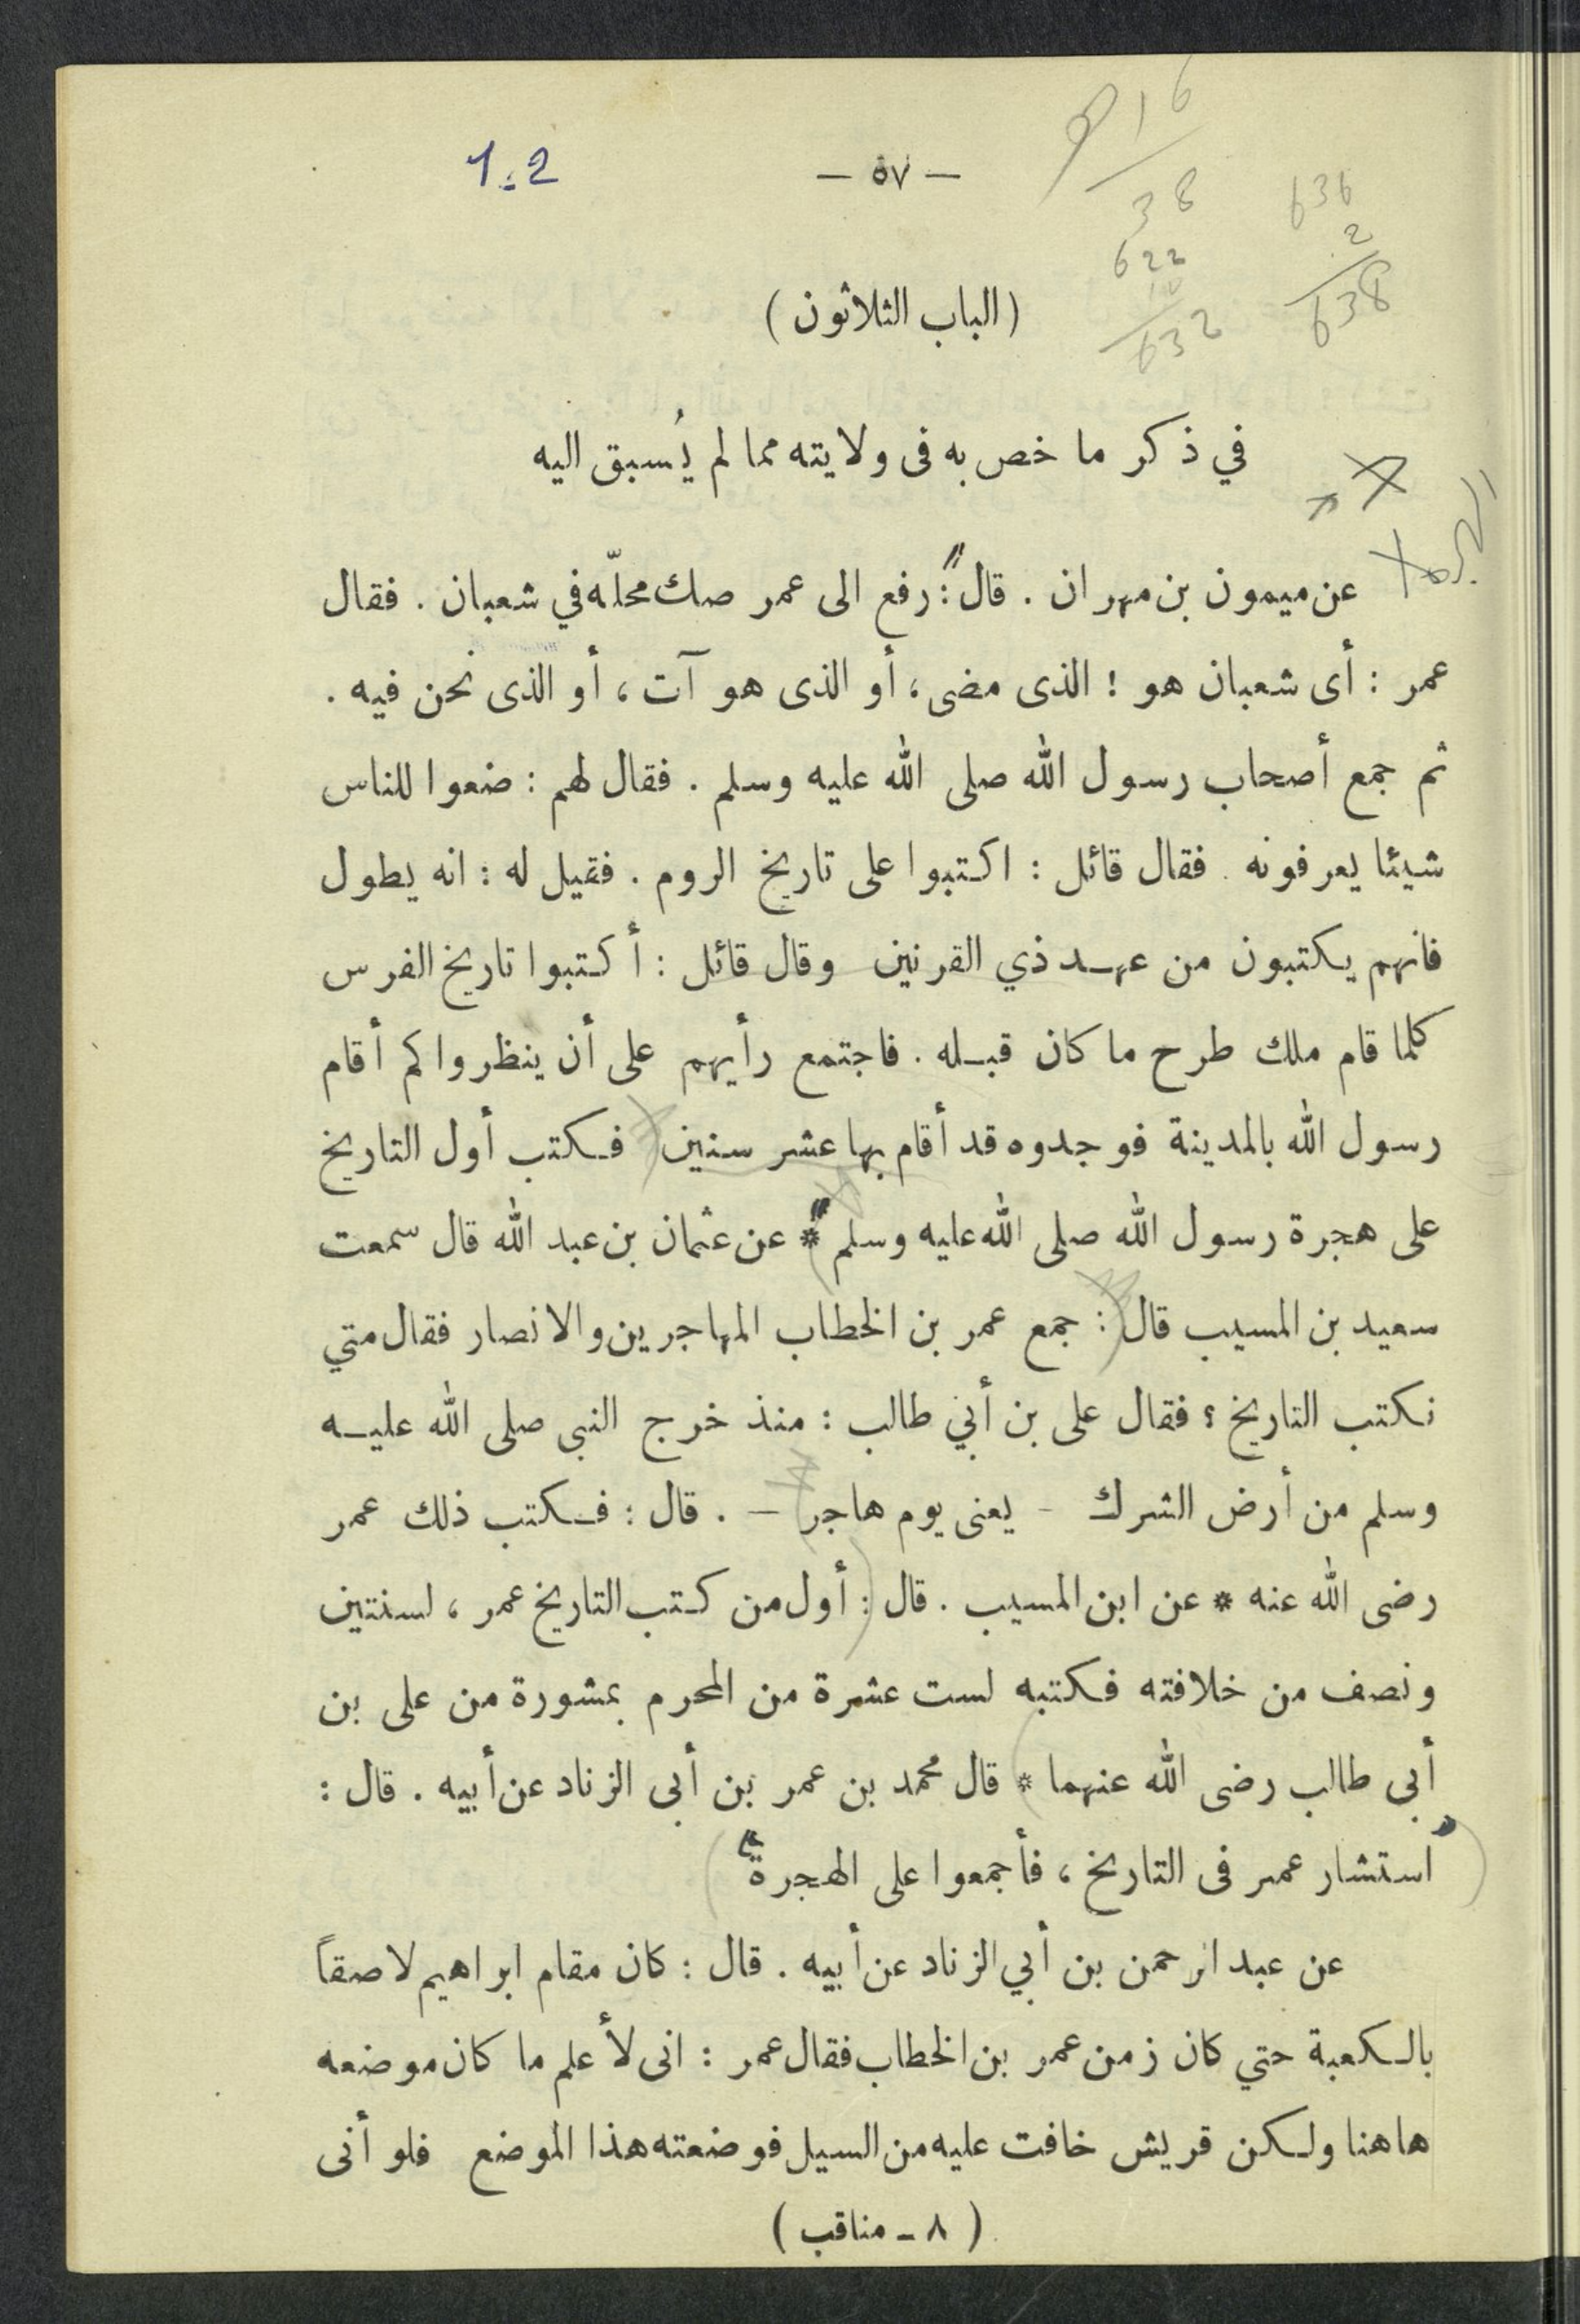 1:2
— ٥٧ —
16
38
622
10
632
636
2
638
(الباب الثلاثون)
في ذكر ما خص به فى ولايته مما لم يُسبق اليه
عن ميمون بن مهران . قال : رفع الى عمر صك محلّه في شعبان . فقال
عمر : أى شعبان هو ! الذى مضى ، أو الذى هو آت ، أو الذى نحن فيه .
ثم جمع أصحاب رسول الله صلى الله عليه وسلم . فقال لهم : ضعوا للناس
شيئا يعرفونه . فقال قائل : اكتبوا على تاريخ الروم . فقيل له : انه يطول
فانهم يكتبون من عهد ذي القرنين وقال قائل : أكتبوا تاريخ الفرس
كلما قام ملك طرح ما كان قبله . فاجتمع رأيهم على أن ينظروا كم أقام
رسول الله بالمدينة فوجدوه قد أقام بها عشر سنين فكتب أول التاريخ
على هجرة رسول الله صلى الله عليه وسلم * عن عثمان بن عبد الله قال سمعت
سعيد بن المسيب قال : جمع عمر بن الخطاب المهاجرين والانصار فقال متي
نكتب التاريخ ؟ فقال على بن أبي طالب : منذ خرج النبى صلى الله عليه
وسلم من أرض الشرك - يعنى يوم هاجر — . قال : فكتب ذلك عمر
رضى الله عنه * عن ابن المسيب . قال : أول من كتب التاريخ عمر ، لسنتين
ونصف من خلافته فكتبه لست عشرة من المحرم بمشورة من على بن
أبى طالب رضى الله عنهما * قال محمد بن عمر بن أبى الزناد عن أبيه . قال :
استشار عمر فى التاريخ ، فأجمعوا على الهجرة
عن عبد الرحمن بن أبي الزناد عن أبيه . قال : كان مقام ابراهيم لاصقاً
بالكعبة حتي كان زمن عمر بن الخطاب فقال عمر : انى لأعلم ما كان موضعه
هاهنا ولكن قريش خافت عليه من السيل فوضعته هذا الموضع فلو أنى
(٨ ـ مناقب)